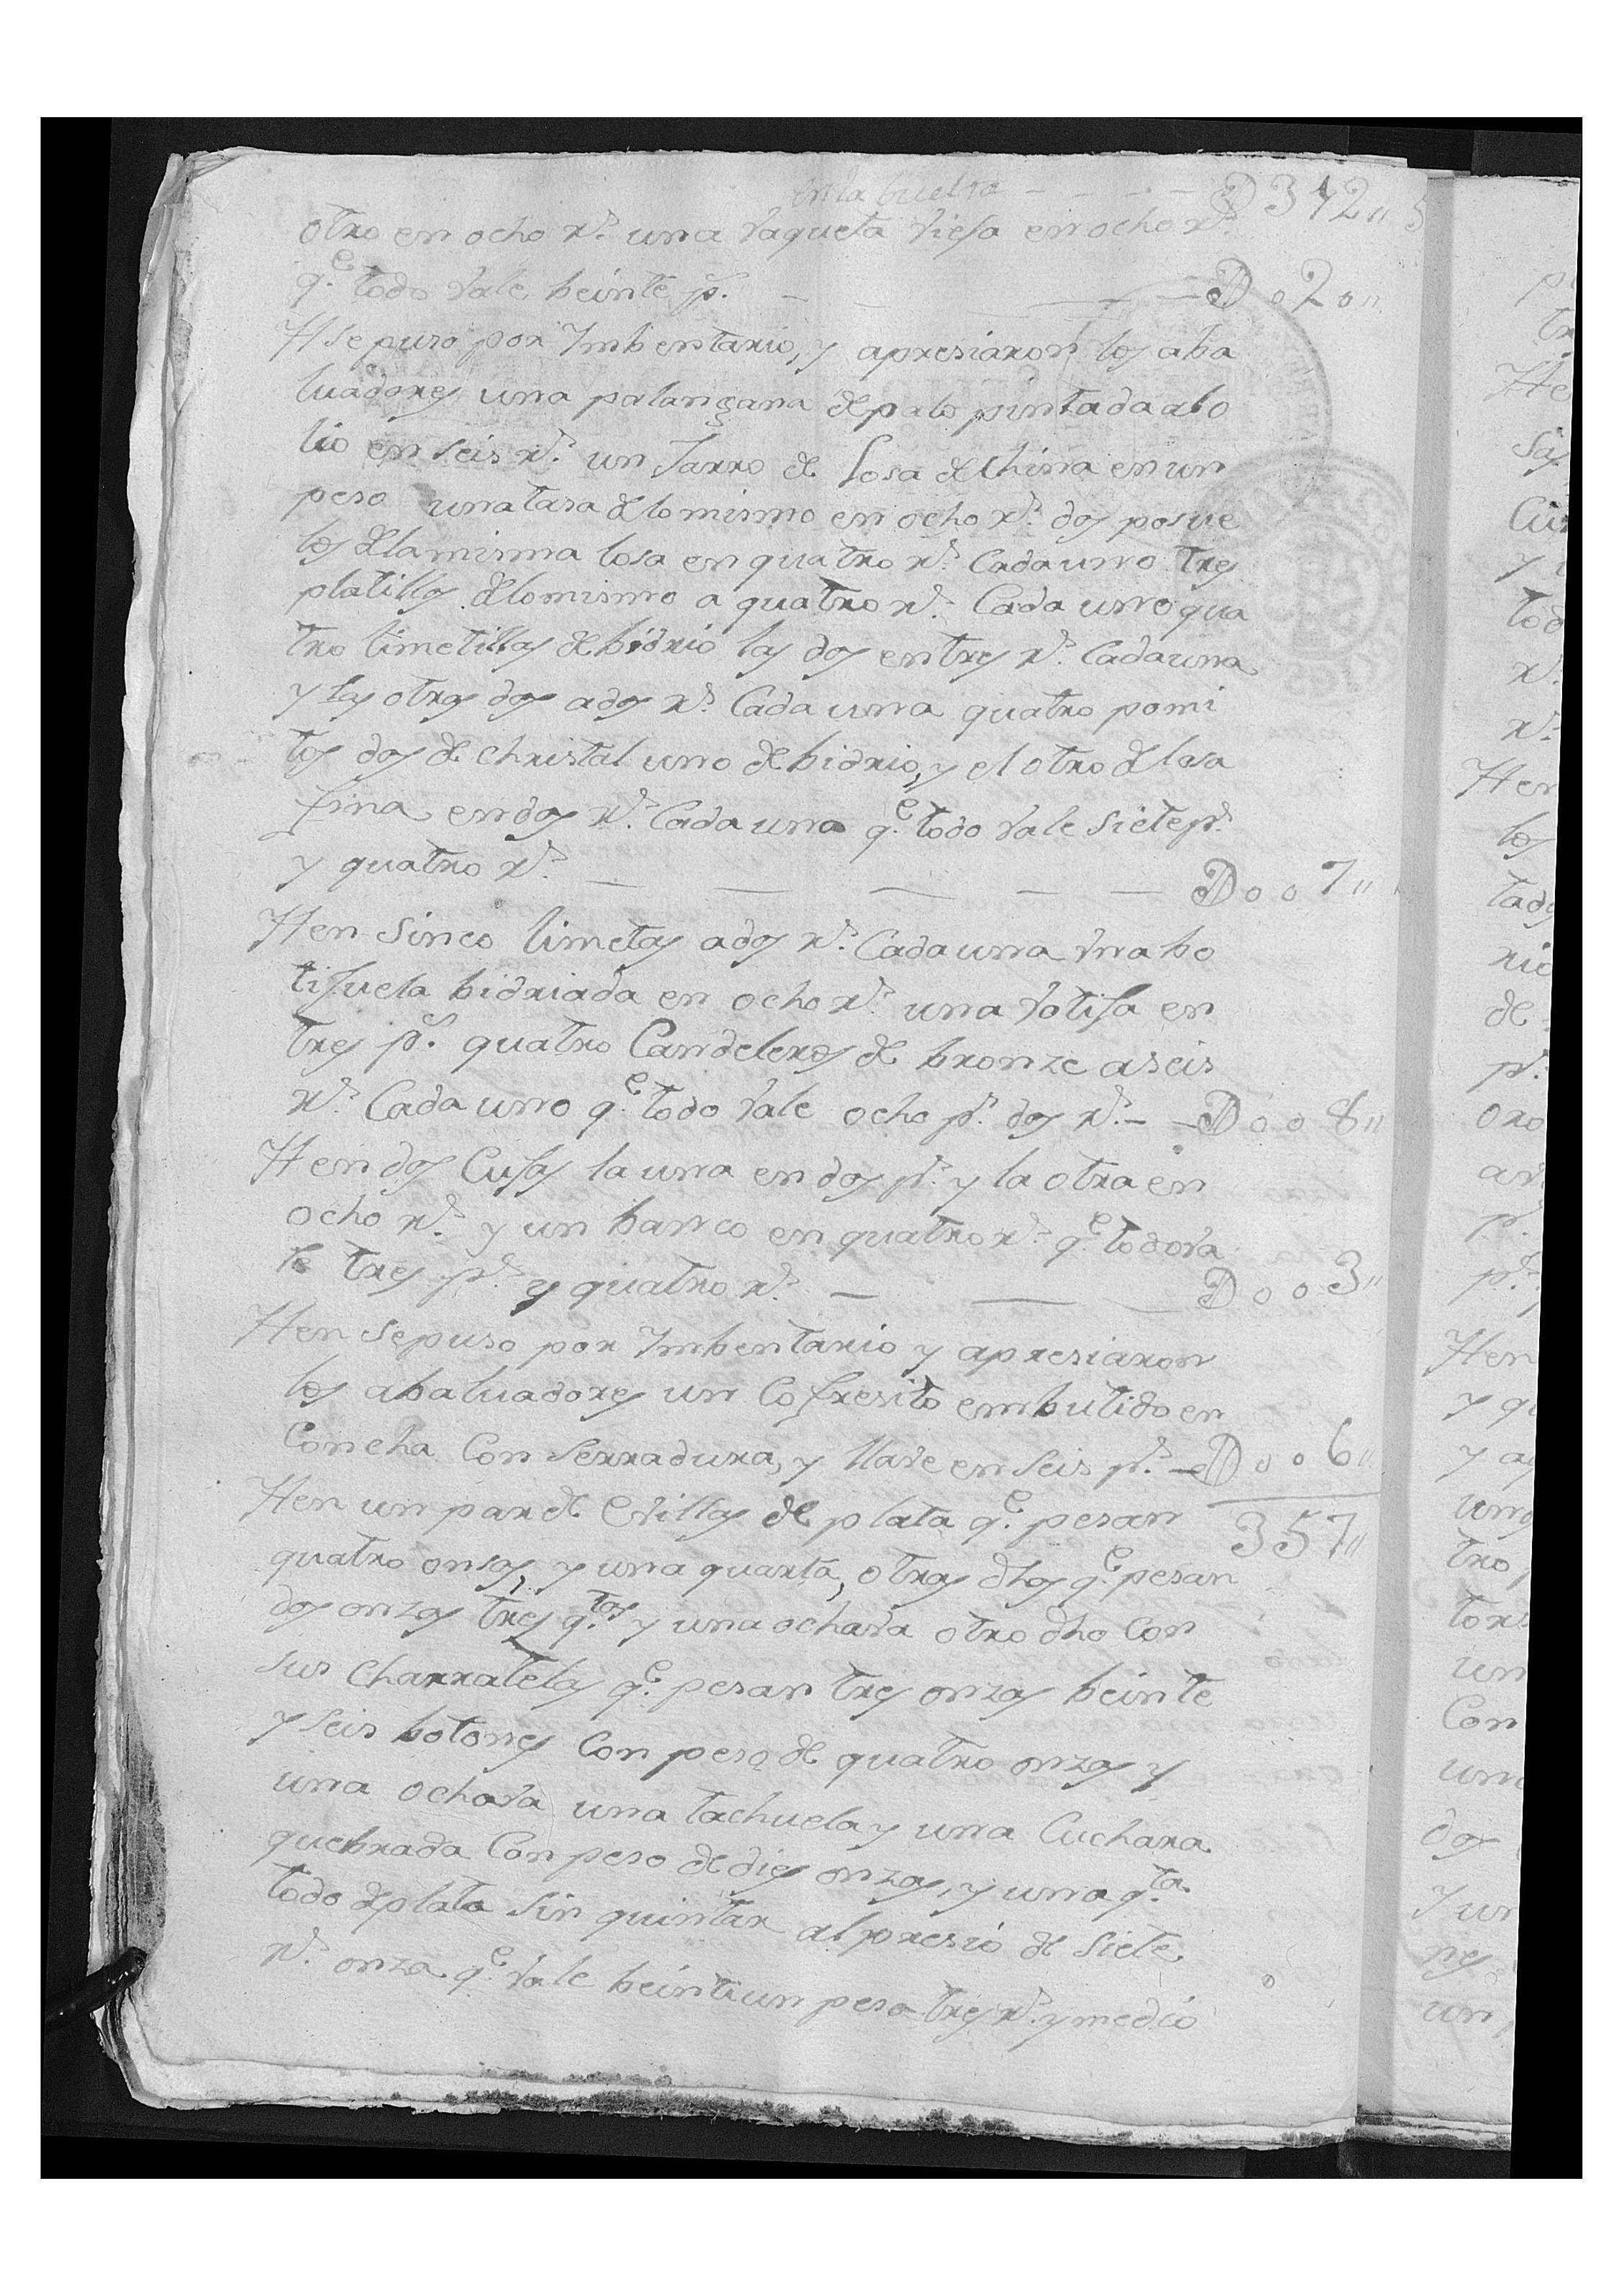 en la buelta - - - - D 342 "
otro en ocho rs. una vaqueta viesa en ocho rs.
qe. todo vale beinte ps. - - - D 020 "
Yt se puso por Ymbentario, y apresiaron los aba
luadores una palangana de palo pintada al o
lio en seis rs. un Jarro de losa de China en un
peso una tasa de lo mismo en ocho rs. dos posue
los de la misma losa en quatro rs. Cada uno tres
platillos de lo mismo a quatro rs. Cada uno qua
tro limetillas de bidrio las dos en tres rs. Cada una
y las otras dos a dos rs. Cada una quatro pomi
tos dos de christal uno de bidrio, y el otro de losa
fina en dos rs. Cada una qe. todo vale siete ps.
y quatro rs. - - - - - D 007 "
Yten sinco limetas a dos rs. Cada una una bo
tijuela bidriada en ocho rs. una votija en
tres ps. quatro Candeleros de bronze a seis
rs. Cada uno qe. todo vale ocho ps. dos rs. - D 008 "
Yten dos Cujas la una en dos ps. y la otra en
ocho rs. y un banco en quatro rs. qe. todo va
le tres ps. y quatro rs. - - - D 003 "
Yten se puso por Ymbentario y apresiaron
los abaluadores un Cofresito embutido en
Concha Con Serradura, y llave en seis ps. - D 006 "
Yten un par de Evillas de plata qe. pesan 357 "
quatro onsas, y una quarta, otras dhos qe. pesan
dos onzas tres qtos. y una ochava otro dho Con
sus Charratelas qe. pesan tres onzas beinte
y seis botones Con peso de quatro onzas y
una ochava una tachuela y una Cuchara
quebrada Con peso de dies onzas, y una qta.
todo de plata sin quintar al presio de siete
rs. onza qe. vale beinti un peso tres rs. y medio